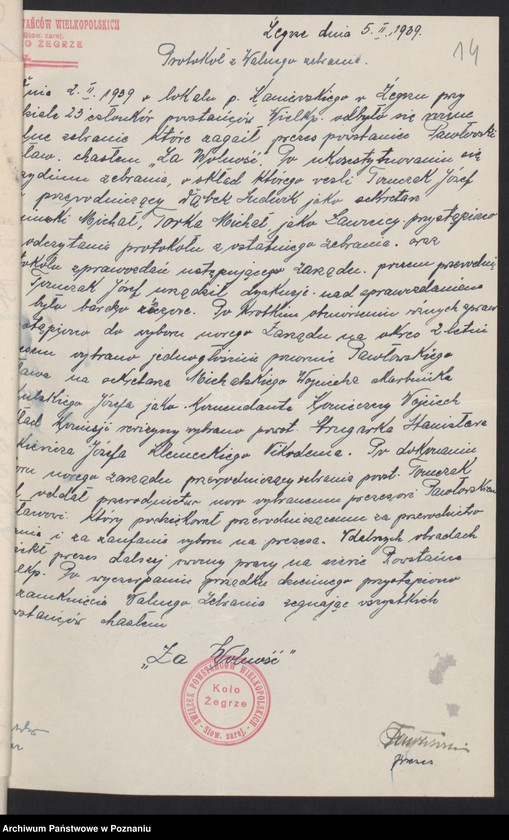 AŃCÓW WIELKOPOLSKICH
Stow. zarej.
O ŻEGRZE
Żegrze dnia 5.II.1939.
14
Protokół z Walnego zebrania.
nia 2.II.1939 w lokalu p. Kaniewskiego w Żegrzu przy
dziale 23 członków powstańców Wielkp. odbyło się
lne zebranie które zagaił prezes powstaniec Pawłowski
ław. hasłem „Za Wolność". Po ukonstytuowaniu się
zydium zebrania, w skład którego weszli Tomczak Józef
przewodniczący, Dąbek Ludwik jako sekretarz
Michał, Torka Michał jako Ławnicy, przystąpiono
odczytania protokółu z ostatniego zebrania. oraz
tokółu sprawozdań ustępującego zarządu. przewodni
Tomczak Józef urządził dyskusję nad sprawozdaniem
było bardzo Po krótkim omówieniu spraw
stąpiono do wyboru nowego Zarządu na okres 2 letni
wybrano jednogłośnie ponownie Pawłowskiego
ława na sekretarza Michalskiego Wojciecha skarbnika
Józefa jako Komendanta Konieczny Wojciech
kład Komisji rewizyjnej wybrano powst. Stanisława
kiewicza Józefa Klemeckiego Nikodema. Po dokonaniu
oru nowego zarządu przewodniczący zebrania powst. Tomczak
f oddał przewodnictwo nowo wybranemu prezesowi Pawłowskiemu
ławowi. który podziękował przewodniczącemu za przewodnictwo
ania i za zaufanie wyboru na prezesa. W dalszych obradach
prezes dalszej owocnej pracy na niwie Powstańca
elkp. Po wyczerpaniu porządku dziennego przystąpiono
zamknięcia Walnego Zebrania żegnając wszystkich
owstańców hasłem
„Za Wolność"
ZWIĄZEK POWSTAŃCÓW WIELKOPOLSKICH
Koło
Żegrze
Stow. zarej.
prezes
Archiwum Państwowe w Poznaniu